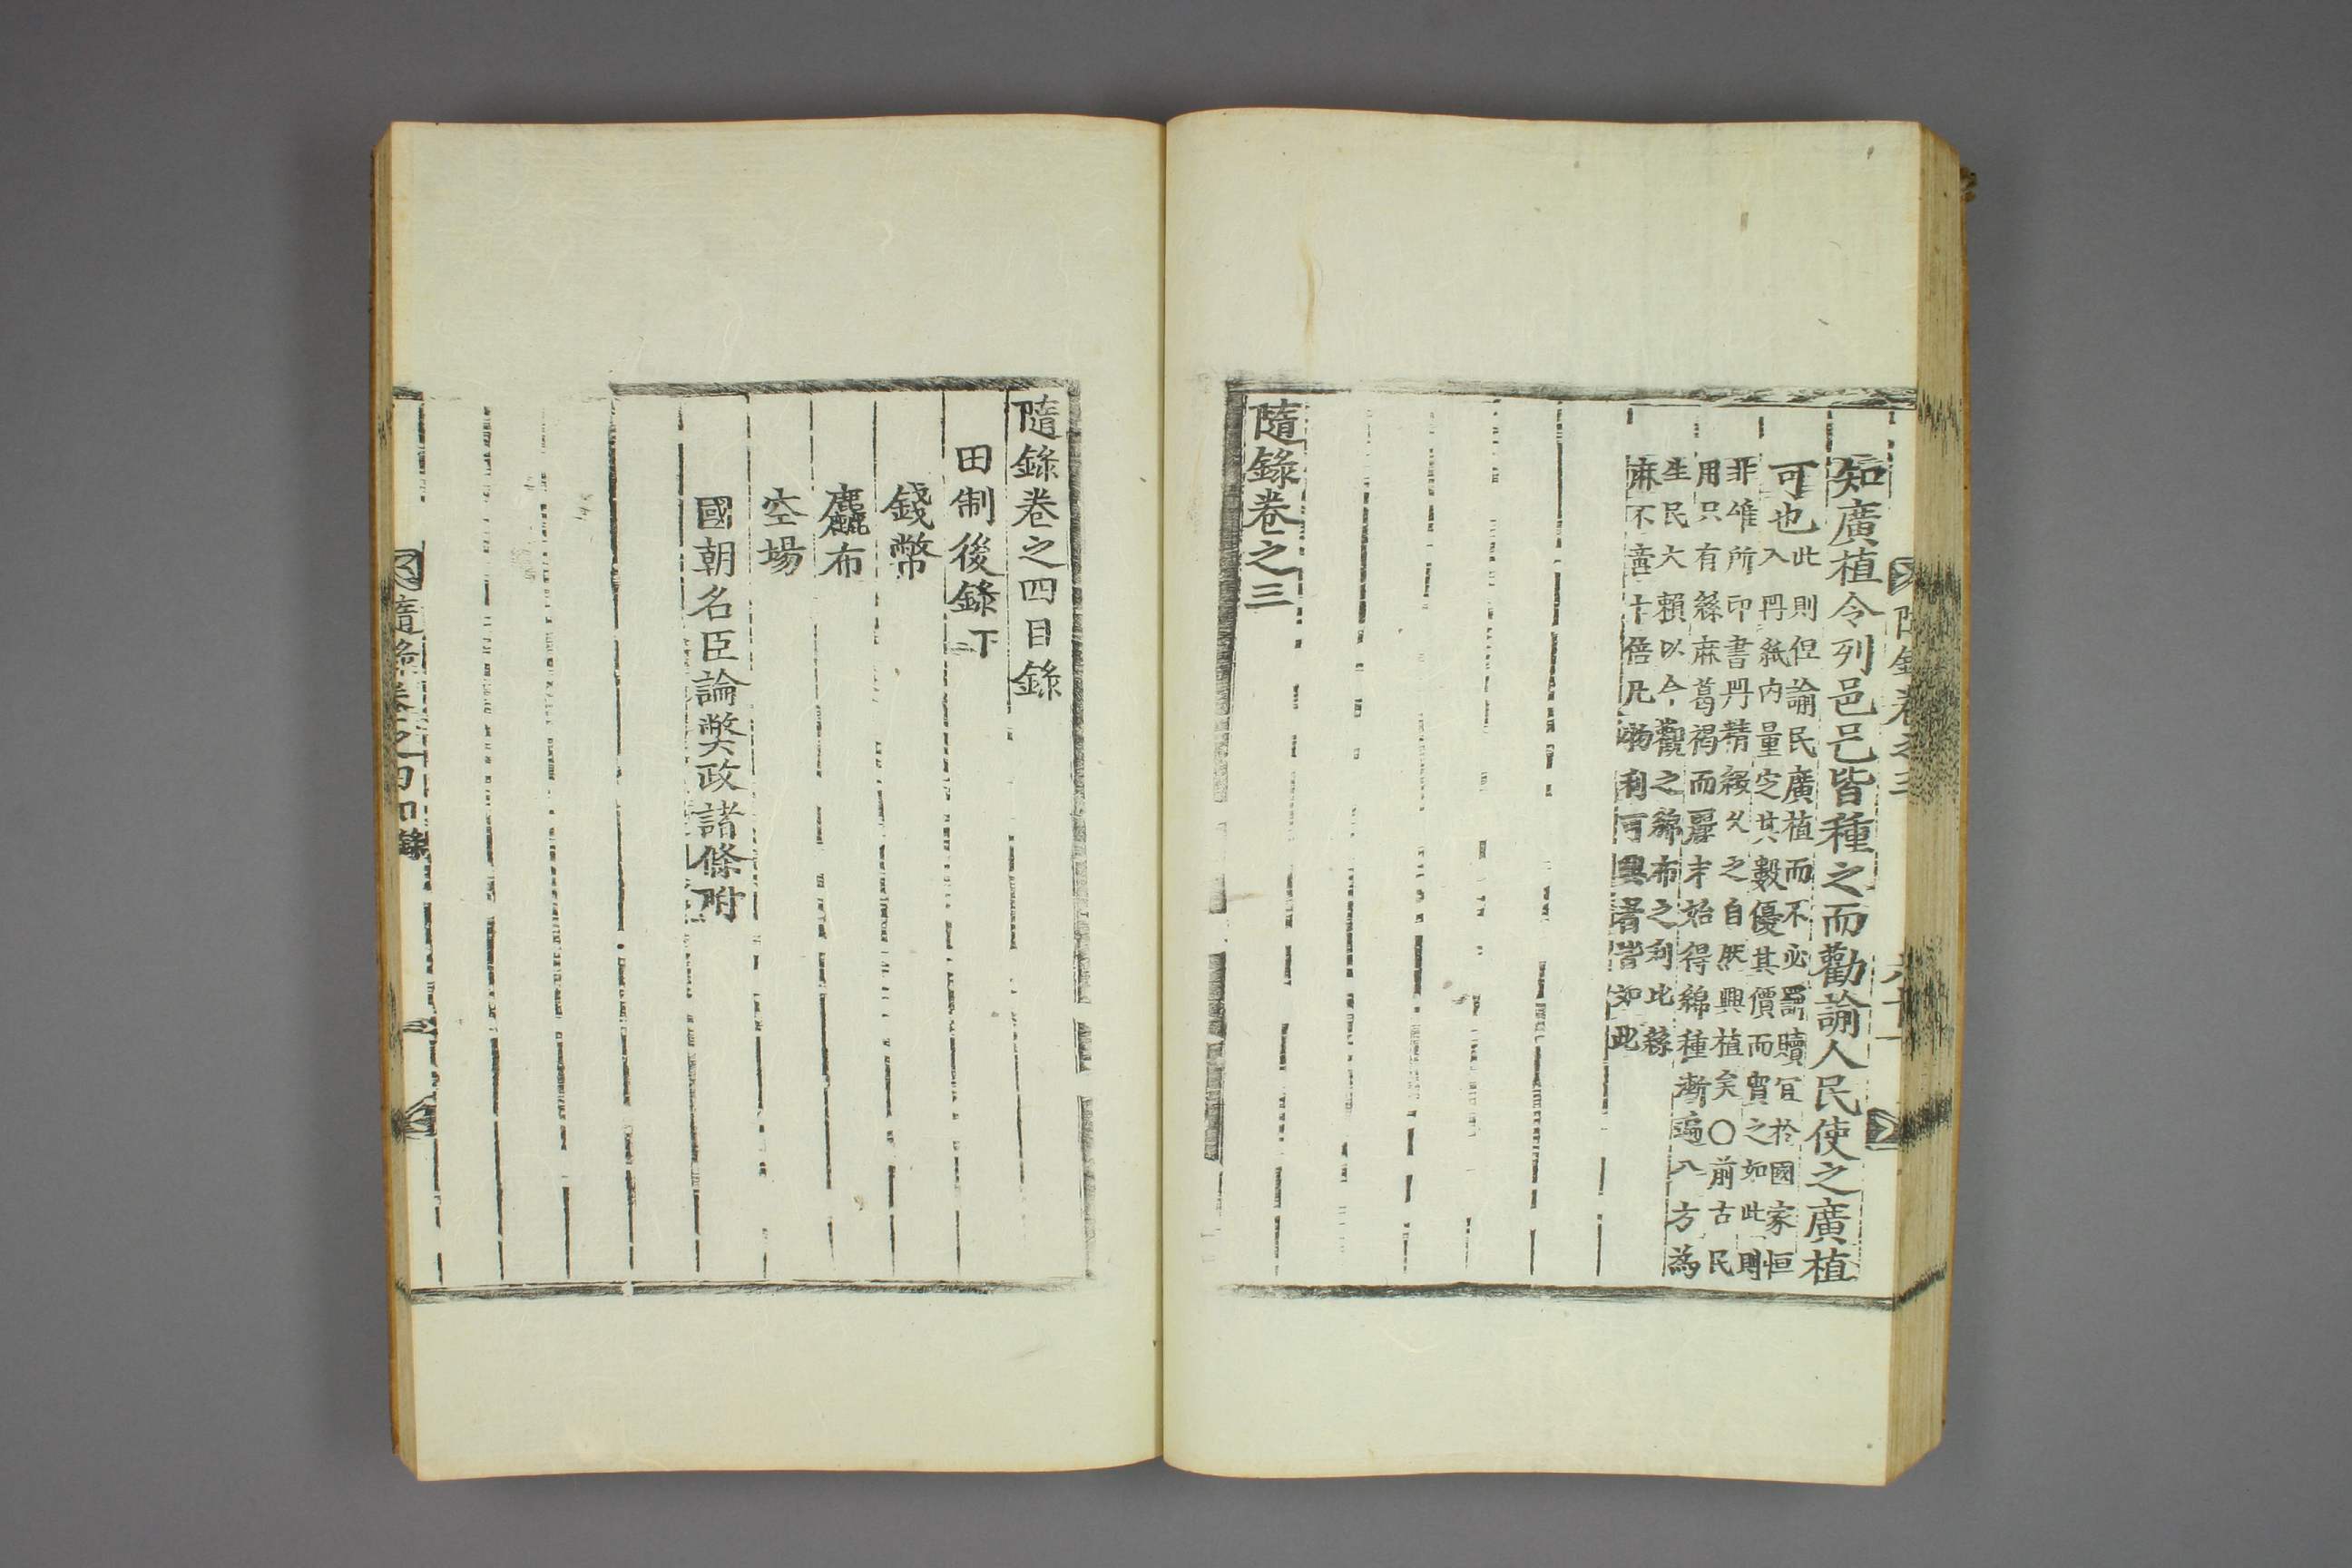 知廣植令列邑邑皆種之而勸諭人民使之廣植
可也
此則但論民廣植而不必罰贖宜於國家恒
入丹紙內量定其數優其價而買之如此則
非唯所印書冊精緻久之自然興植矣○前古民
用只有絲麻葛褐而麗末始得綿種漸遍八方為
生民大賴以今觀之綿布之利比絲
麻不啻十倍凡物利可興者皆如此
隨錄卷之三
隨錄卷之四目錄
田制後錄下
錢幣
麤布
空場
國朝名臣論獘政諸條附
隨錄卷之四目錄